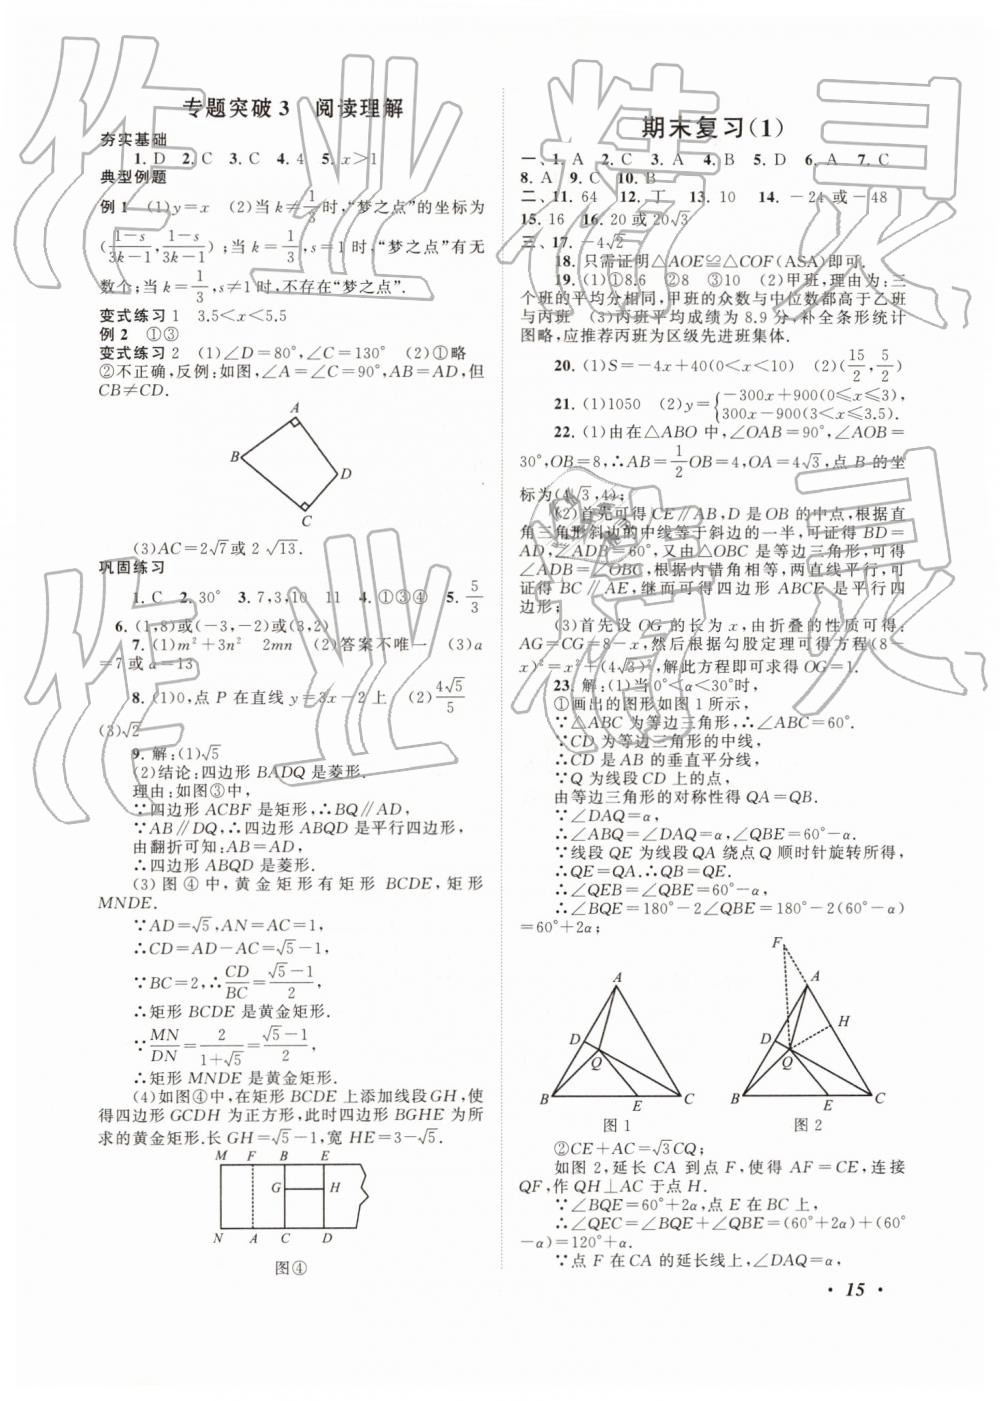 专题突破3 阅读理解
夯实基础
1. D 2. C 3. C 4. 4 5. x>1
典型例题
例1 (1)y=x (2)当k≠1/3时,“梦之点”的坐标为
((1-s)/(3k-1),(1-s)/(3k-1));当k=1/3,s=1时,“梦之点”有无
数个;当k=1/3,s≠1时,不存在“梦之点”.
变式练习1 3.5<x<5.5
例2 ①③
变式练习2 (1)∠D=80°,∠C=130° (2)①略
②不正确,反例:如图,∠A=∠C=90°,AB=AD,但
CB≠CD.
A
B
D
C
(3)AC=2√7或2√13.
巩固练习
1. C 2. 30° 3. 7,3,10 11 4. ①③④ 5. 5/3
6. (1,8)或(-3,-2)或(3,2)
7. (1)m²+3n² 2mn (2)答案不唯一 (3)a
=7或a=13
8. (1)0,点P在直线y=3x-2上 (2)4√5/5
(3)√2
9. 解:(1)√5
(2)结论:四边形BADQ是菱形.
理由:如图③中,
∵四边形ACBF是矩形,∴BQ∥AD,
∵AB∥DQ,∴四边形ABQD是平行四边形,
由翻折可知:AB=AD,
∴四边形ABQD是菱形.
(3)图④中,黄金矩形有矩形BCDE,矩形
MNDE.
∵AD=√5,AN=AC=1,
∴CD=AD-AC=√5-1,
∵BC=2,∴CD/BC=(√5-1)/2,
∴矩形BCDE是黄金矩形.
∵MN/DN=2/(1+√5)=(√5-1)/2,
∴矩形MNDE是黄金矩形.
(4)如图④中,在矩形BCDE上添加线段GH,使
得四边形GCDH为正方形,此时四边形BGHE为所
求的黄金矩形.长GH=√5-1,宽HE=3-√5.
M F B E
G H
N A C D
图④
期末复习(1)
一、1. A 2. C 3. A 4. B 5. D 6. A 7. C
8. A 9. C 10. B
二、11. 64 12. 丁 13. 10 14. -24或-48
15. 16 16. 20或20√3
三、17. -4√2
18. 只需证明△AOE≌△COF(ASA)即可.
19. (1)①8.6 ②8 ③10 (2)甲班,理由为:三
个班的平均分相同,甲班的众数与中位数都高于乙班
与丙班 (3)丙班平均成绩为8.9分,补全条形统计
图略,应推荐丙班为区级先进班集体.
20. (1)S=-4x+40(0<x<10) (2)(15/2,5/2)
21. (1)1050 (2)y={-300x+900(0≤x≤3),
300x-900(3<x≤3.5).
22. (1)由在△ABO中,∠OAB=90°,∠AOB=
30°,OB=8,∴AB=1/2OB=4,OA=4√3,点B的坐
标为(4√3,4);
(2)首先可得CE∥AB,D是OB的中点,根据直
角三角形斜边的中线等于斜边的一半,可证得BD=
AD,∠ADB=60°,又由△OBC是等边三角形,可得
∠ADB=∠OBC,根据内错角相等,两直线平行,可
证得BC∥AE,继而可得四边形ABCE是平行四
边形;
(3)首先设OG的长为x,由折叠的性质可得:
AG=CG=8-x,然后根据勾股定理可得方程(8-
x)²=x²+(4√3)²,解此方程即可求得OG=1.
23. 解:(1)当0°<α<30°时,
①画出的图形如图1所示,
∵△ABC为等边三角形,∴∠ABC=60°.
∵CD为等边三角形的中线,
∴CD是AB的垂直平分线,
∵Q为线段CD上的点,
由等边三角形的对称性得QA=QB.
∵∠DAQ=α,
∴∠ABQ=∠DAQ=α,∠QBE=60°-α.
∵线段QE为线段QA绕点Q顺时针旋转所得,
∴QE=QA.∴QB=QE.
∴∠QEB=∠QBE=60°-α,
∴∠BQE=180°-2∠QBE=180°-2(60°-α)
=60°+2α;
A
D
Q
B E C
图1
F
A
H
D
Q
B E C
图2
②CE+AC=√3CQ;
如图2,延长CA到点F,使得AF=CE,连接
QF,作QH⊥AC于点H.
∵∠BQE=60°+2α,点E在BC上,
∴∠QEC=∠BQE+∠QBE=(60°+2α)+(60°
-α)=120°+α.
∵点F在CA的延长线上,∠DAQ=α,
• 15 •
作业精灵
作业精灵